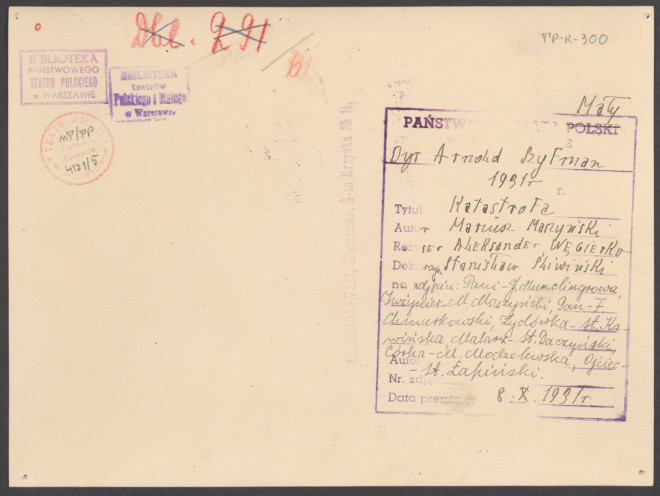 Dbl. 291
TP-K-300
BIBLIOTEKA
PAŃSTWOWEGO
TEATRU POLSKIEGO
w WARSZAWIE
BIBLIOTEKA
teatrów
Polskiego i Małego
w Warszawie
MP/PP
4171/5
Mały
PAŃSTWO POLSKI
Dyr Arnold Szyfman
1931r
r.
Tytuł Katastrofa
Autor Mariusz Maszyński
Reżyser Aleksander WĘGIERKO
Dekoracje Stanisław Śliwiński
na zdjęciu: Pani-J. Munclingrowa,
Inżynier-M. Maszyński, Pan-F.
Chmurkowski, Żydówka-St. Ka-
wińska, Malarz-St. Daczyński,
Córka-M. Modzelewska, Ojciec-
-St. Łapiński.
Autor
Nr. zdj
Data prem 8.X.1931r